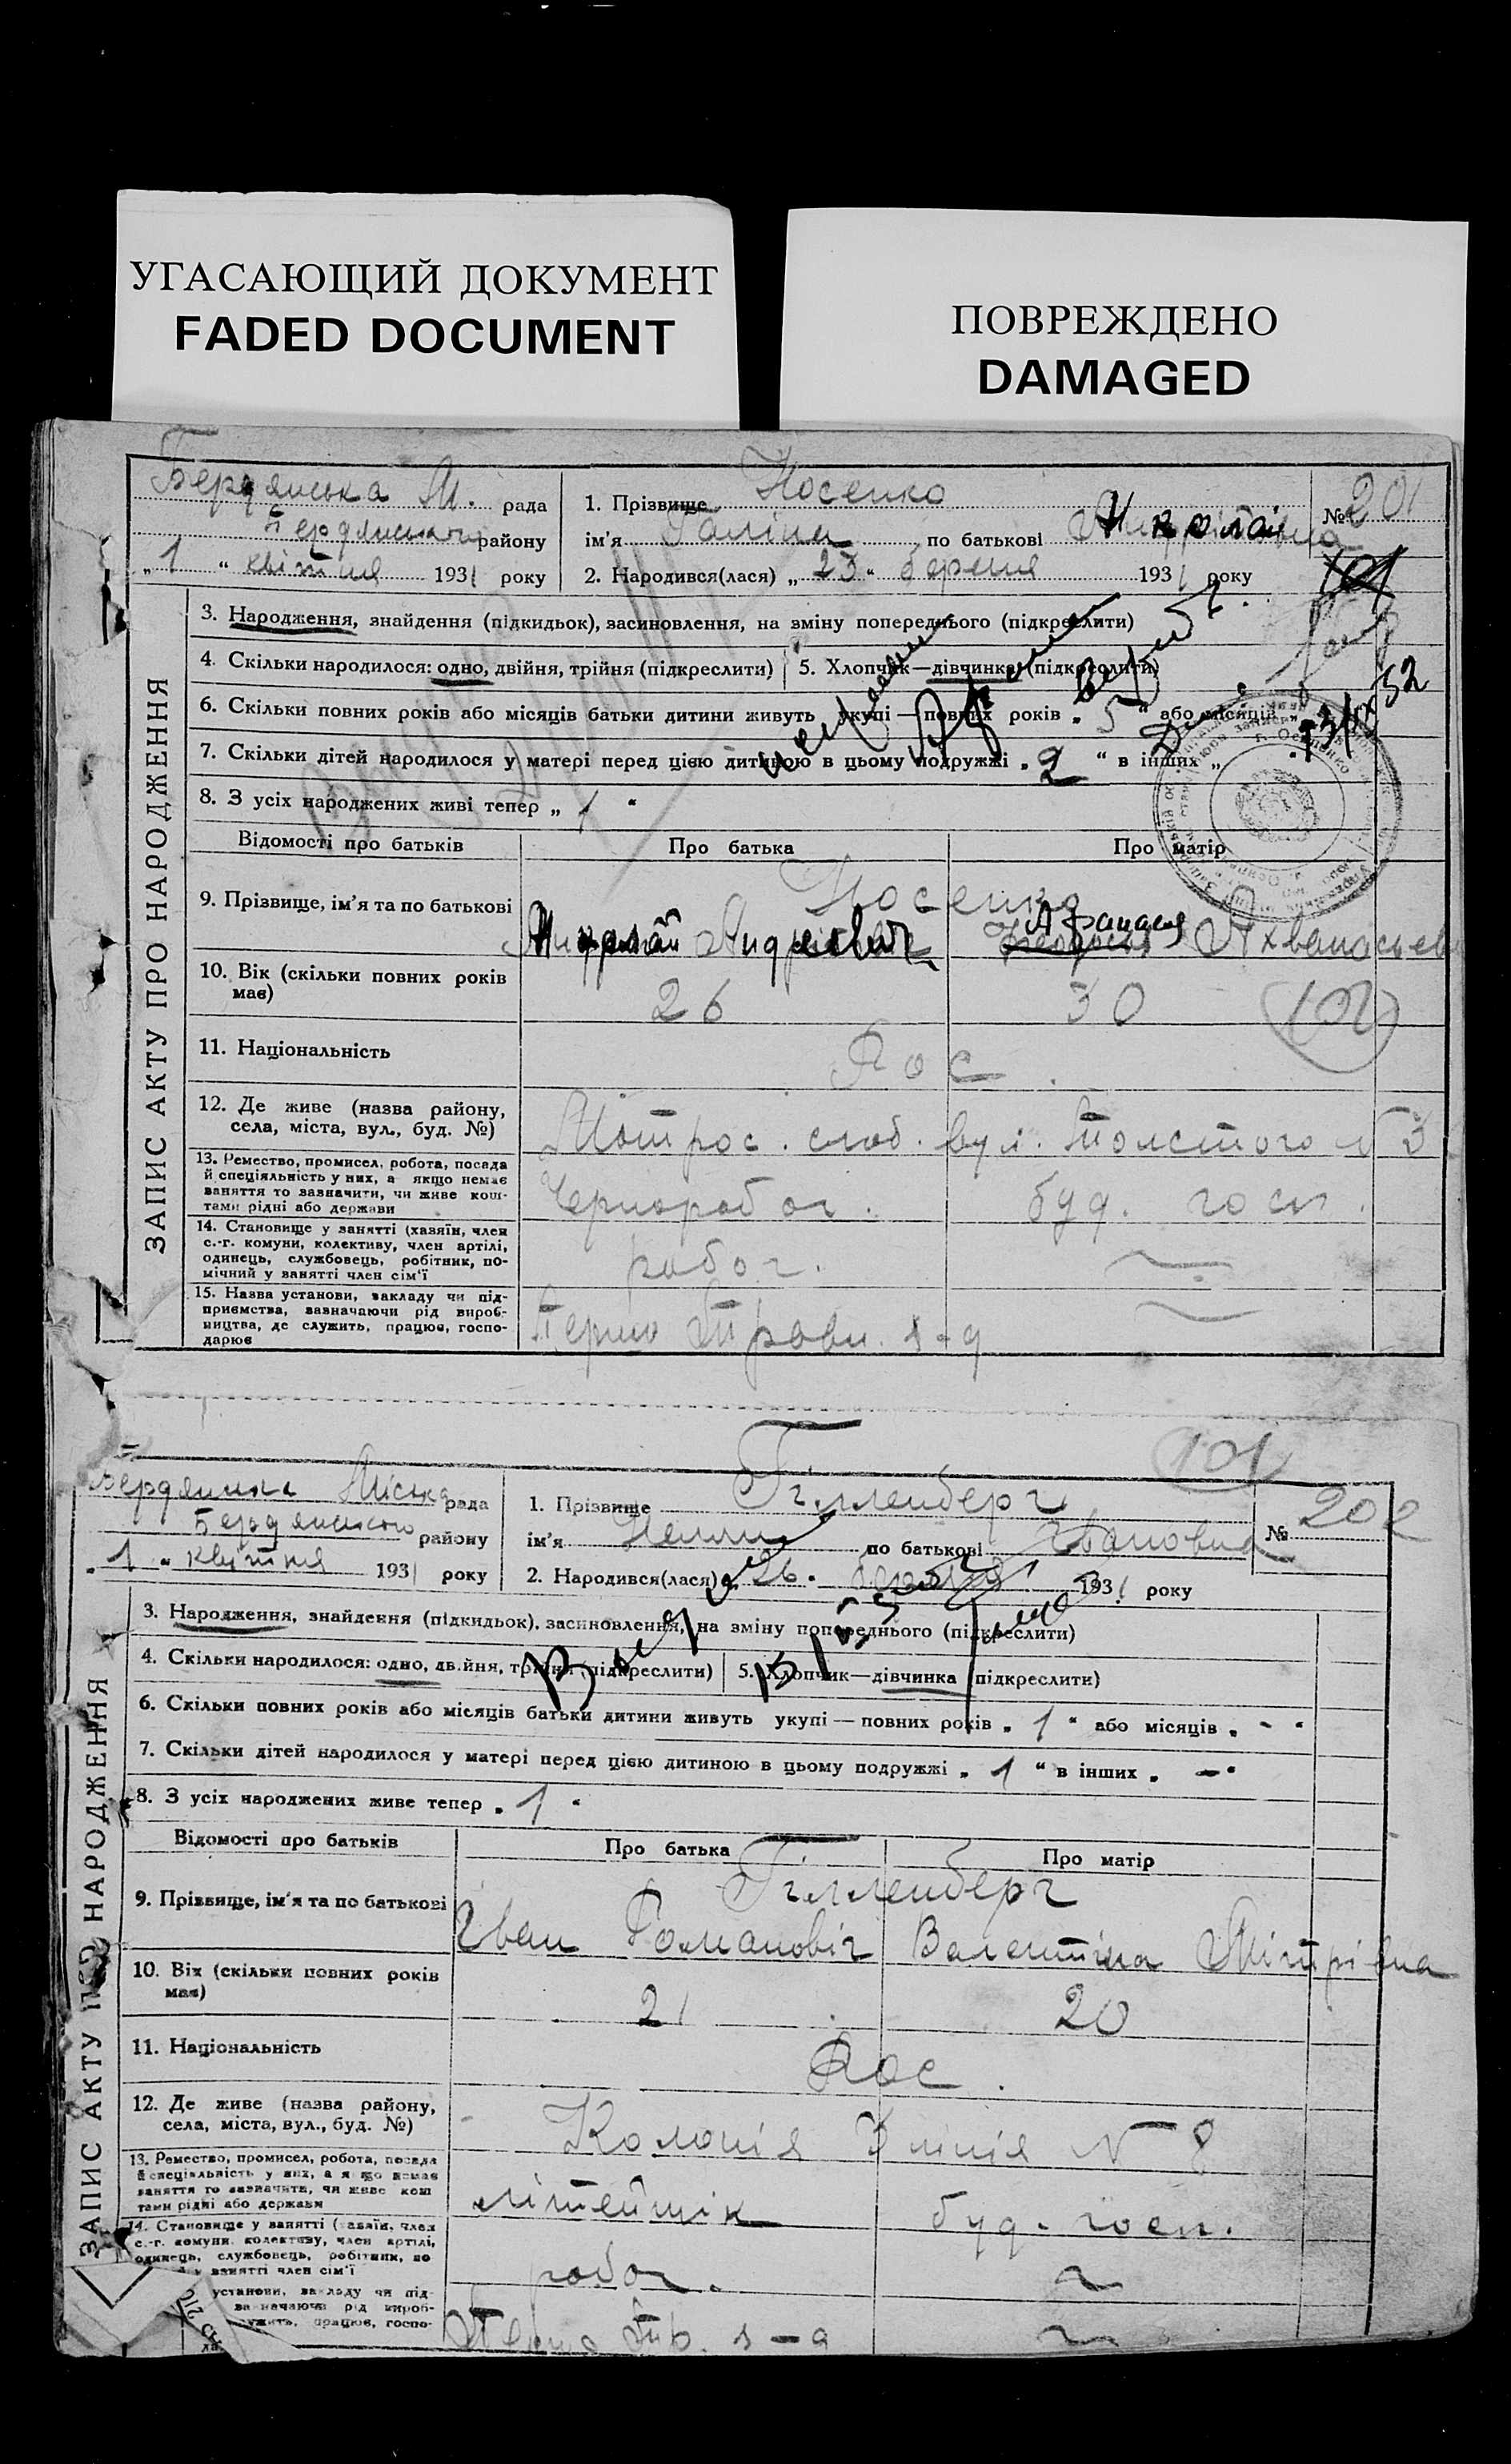 УГАСАЮЩИЙ ДОКУМЕНТ
FADED DOCUMENT
ПОВРЕЖДЕНО
DAMAGED
Бердянська М. рада
Бердянського району
„ 1 “ квітня 1931 року
1. Прізвище Носенко
ім'я Галіна по батькові
№ 201
2. Народився(лася) „ 23 “ березня 1931 року
101
ЗАПИС АКТУ ПРО НАРОДЖЕННЯ
3. Народження, знайдення (підкидьок), засиновлення, на зміну попереднього (підкреслити)
4. Скільки народилося: одно, двійня, трійня (підкреслити)
5. Хлопчик—дівчинка (підкреслити)
6. Скільки повних років або місяців батьки дитини живуть укупі — повних років „ 5 “ або місяців „
7. Скільки дітей народилося у матері перед цією дитиною в цьому подружжі „ 2 “ в інших „
8. З усіх народжених живі тепер „ 1 “
Відомості про батьків
Про батька
Про матір
9. Прізвище, ім'я та по батькові
Носенко
10. Вік (скільки повних років має)
26
30
102
11. Національність
Рос.
12. Де живе (назва району, села, міста, вул., буд. №)
Матрос. слоб. вул. Толстого N 3
13. Ремество, промисел, робота, посада й спеціяльність у них, а якщо немає заняття то зазначити, чи живе коштами рідні або держави
Чернороboч.
буд. госп.
14. Становище у занятті (хазяїн, член с.-г. комуни, колективу, член артілі, одинець, службовець, робітник, помічний у занятті член сім'ї
робоч.
15. Назва установи, закладу чи підприємства, зазначаючи рід виробництва, де служить, працює, господарює
101
Бердянська Міська рада
Бердянського району
„ 1 “ квітня 1931 року
1. Прізвище Гілленберг
ім'я Неллі по батькові Івановна
№ 202
2. Народився(лася) „ 26 “ березня 1931 року
ЗАПИС АКТУ ПРО НАРОДЖЕННЯ
3. Народження, знайдення (підкидьок), засиновлення, на зміну попереднього (підкреслити)
4. Скільки народилося: одно, двійня, трійня (підкреслити)
5. Хлопчик—дівчинка (підкреслити)
6. Скільки повних років або місяців батьки дитини живуть укупі — повних років „ 1 “ або місяців „ - “
7. Скільки дітей народилося у матері перед цією дитиною в цьому подружжі „ 1 “ в інших „ — “
8. З усіх народжених живе тепер „ 1 “
Відомості про батьків
Про батька
Про матір
9. Прізвище, ім'я та по батькові
Гілленберг
Іван Романовіч
Валентіна Мітрівна
10. Вік (скільки повних років має)
21
20
11. Національність
Рос.
12. Де живе (назва району, села, міста, вул., буд. №)
Колонія 3 лінія N 8
13. Ремество, промисел, робота, посада й спеціяльність у них, а якщо немає заняття то зазначити, чи живе коштами рідні або держави
літейщік
буд. госп.
14. Становище у занятті (хазяїн, член с.-г. комуни, колективу, член артілі, одинець, службовець, робітник, по
у занятті член сім'ї
робоч.
установи, закладу чи під-
зазначаючи рід вироб-
служить, працює, госпо-